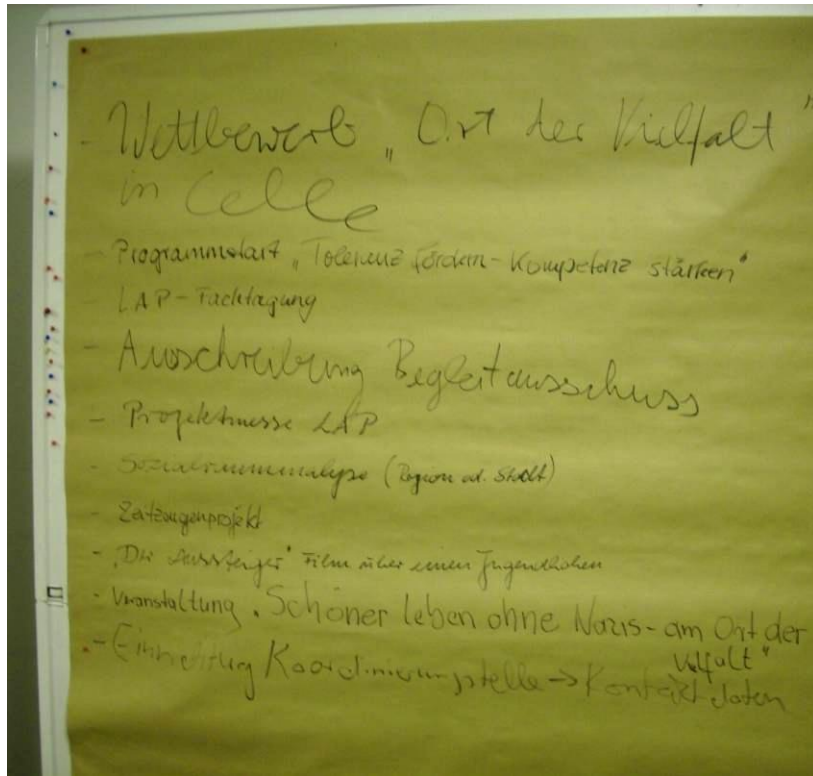 - Wettbewerb „Ort der Vielfalt"
in Celle
- Programmstart „Toleranz fördern - Kompetenz stärken"
- LAP - Fachtagung
- Ausschreibung Begleitausschuss
- Projektmesse LAP
- Sozialraumanalyse (Region od. Stadt)
- Zeitzeugenprojekt
- „Der Aussteiger" Film über einen Jugendlichen
- Veranstaltung „Schöner leben ohne Nazis - am Ort der
Vielfalt"
- Einrichtung Koordinierungsstelle -> Kontaktdaten